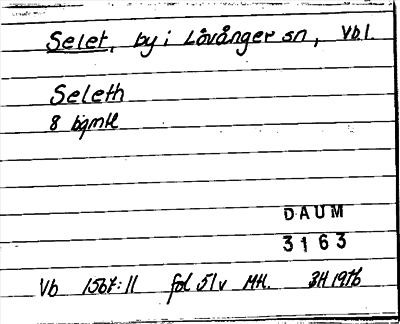 Selet, by i Lövånger sn, Vbl.
Seleth
8 bgmtl
DAUM
3163
Vb 1567:11 fol 51v MH. 3H 1976